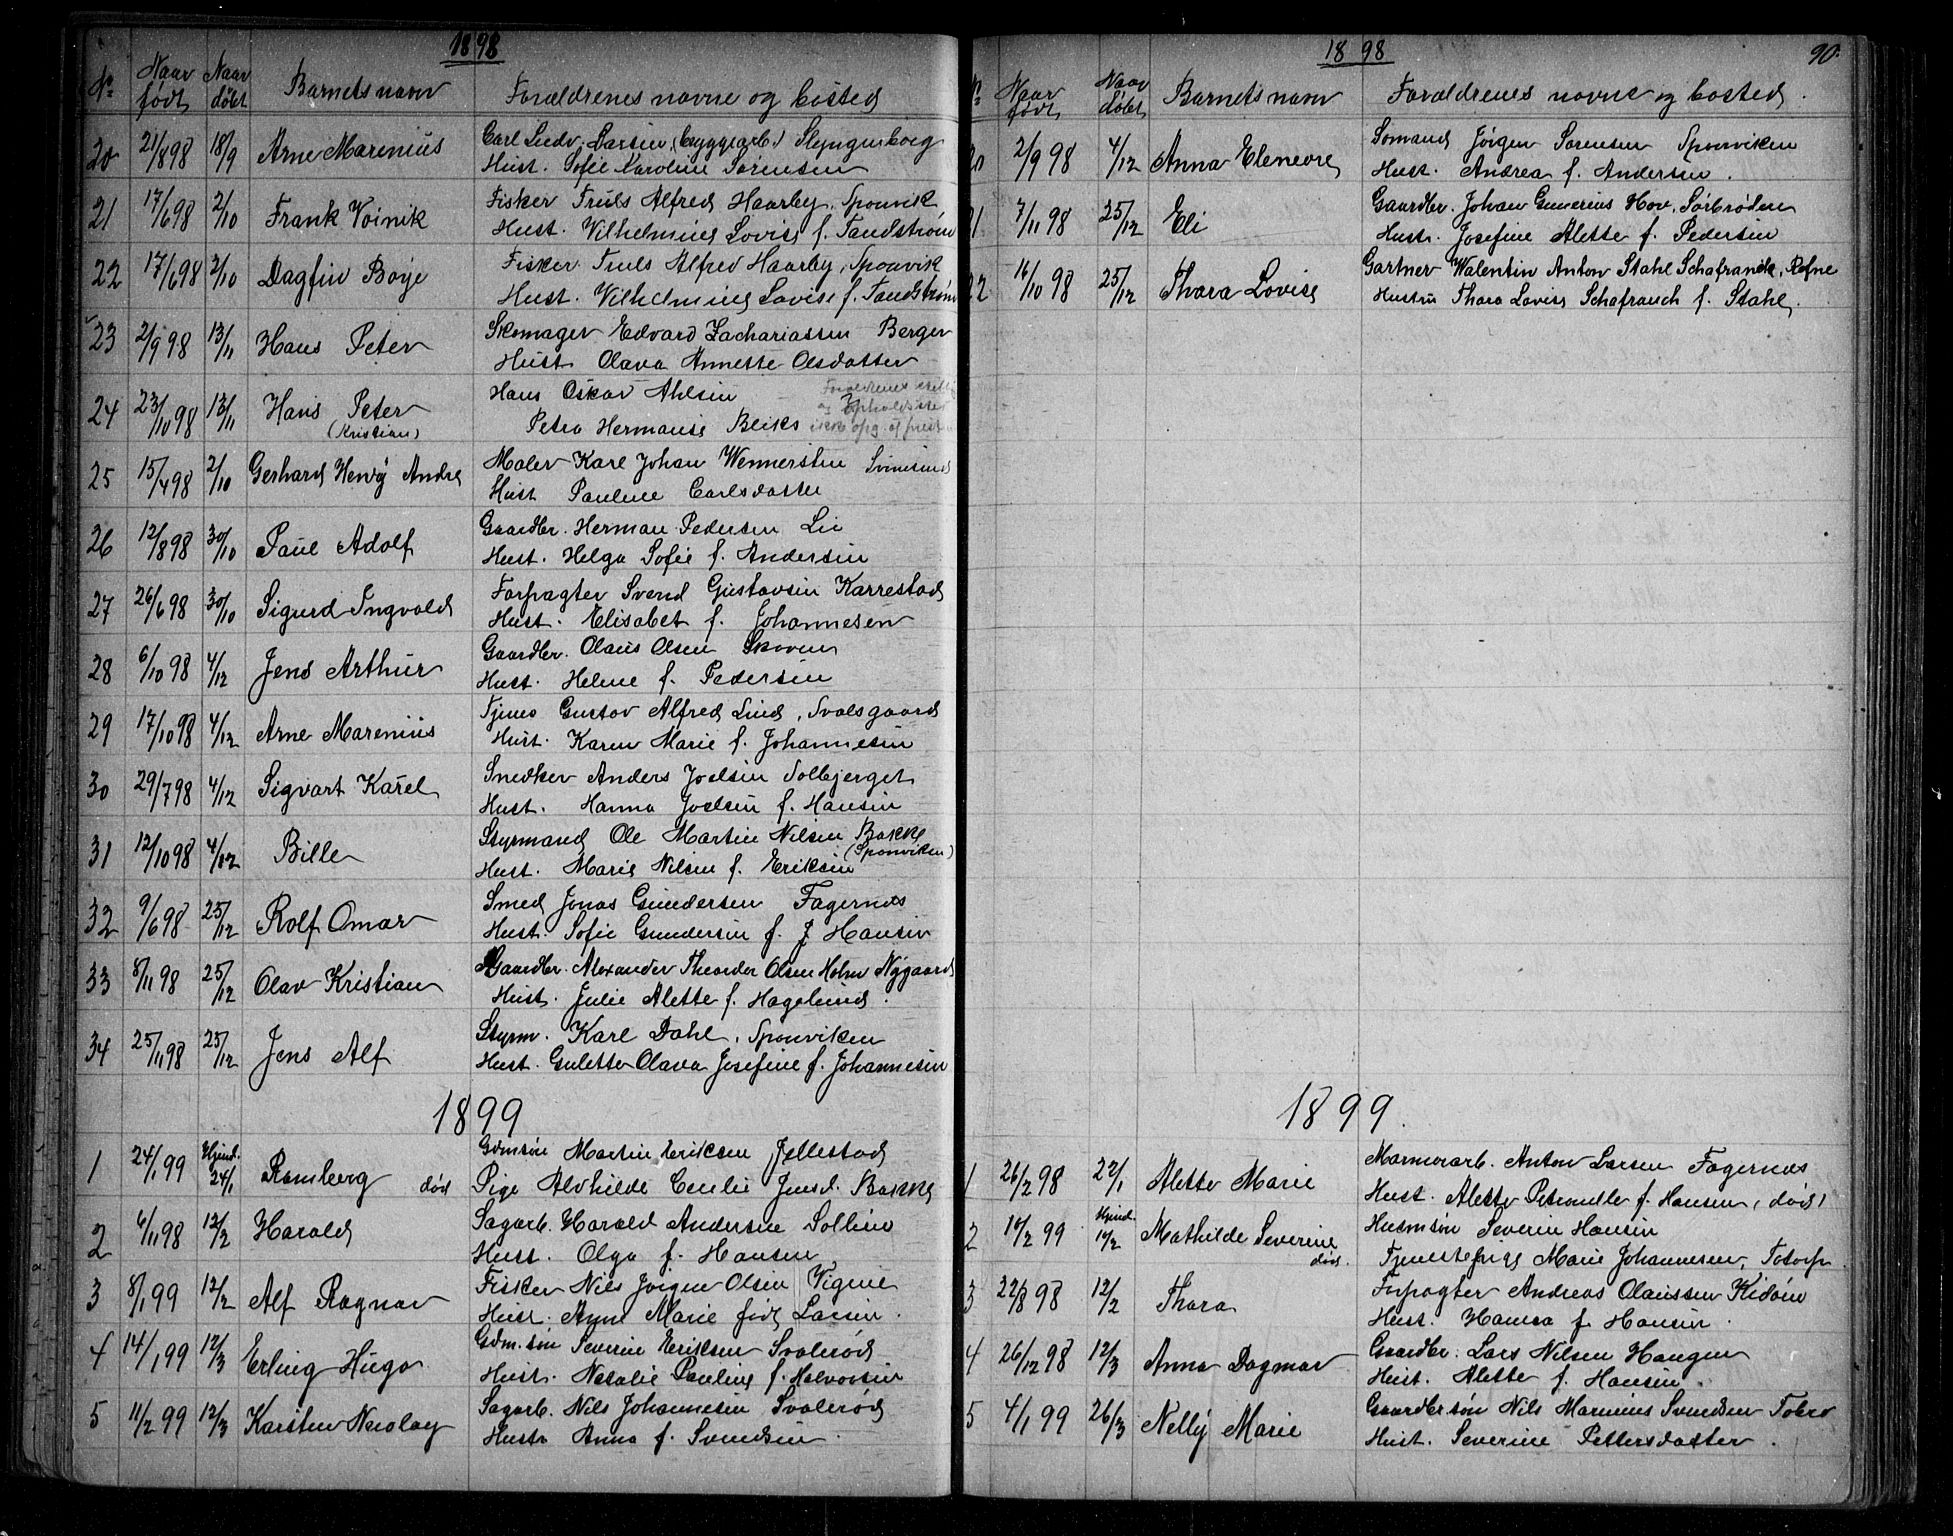 1898
No Naar født Naar døbt Barnets navn Forældrenes navne og bosted
20 21/8 98 18/9 Arne Marenius Carl Ludv. Larsen, (bryggearb.)
Hust. Sofie Karoline Sørensen
21 17/6 98 2/10 Frank Voinik Fisker Truls Alfred Haarby, Sponvik
Hust. Vilhelmine Lovise f. Tandstrøm
22 17/6 98 2/10 Dagfin Boye Fisker Truls Alfred Haarby, Sponvik
Hust. Vilhelmine Lovise f. Tandstrøm
23 2/9 98 13/11 Hans Peter Skomager Edvard Zachariassen Berger
Hust Olava Annette Olsdatter
24 23/10 98 13/11 Hans Peter Hans Oskar Ahlsen Forældrenes
(Kristian) og opholdssted
Petra Hermanse Beiks ikke opg. af
25 15/4 98 2/10 Gerhard Henry Andre Maler Karl Johan Wennersten Svinesund
Hust Pauline Carlsdatter
26 12/8 98 30/10 Paul Adolf Gaardbr. Herman Pedersen Lie
Hust. Helga Sofie f. Andersen
27 26/6 98 30/10 Sigurd Ingvald Forpagter Svend Gustavsen Karrestad
Hust. Elisabet f. Johannesen
28 6/10 98 4/12 Jens Arthur Gaardbr. Olaus Olsen Skoven
Hust. Helene f. Pedersen
29 17/10 98 4/12 Arne Marenius Tjener Gustav Alfred Lind, Svalsgaard
Hust. Karen Marie f. Johannesen
30 29/7 98 4/12 Sigvart Karel Snedker Anders Joelsen Solbjerget
Hust. Hanna Joelsen f. Hansen
31 12/10 98 4/12 Bille Styrmand Ole Martin Nilsen Bakke
(Sponviken)
Hust. Marie Nilsen f. Eriksen
32 9/6 98 25/12 Rolf Omar Smed Jonas Gundersen Fagernæs
Hust. Sofie Gundersen f. J Hansen
33 8/11 98 25/12 Olav Kristian Gaardbr. Alexander Theodor Olsen Holm Nygaard
Hust. Julie Alette f. Hagelund.
34 25/11 98 25/12 Jens Alf Styrm. Karl Dahl, Sponviken
Hust. Gulette Olava Josefine f. Johannesen
1899
1 24/1 99 Hjemd. 24/1 Ramberg død Gdmsøn Martin Eriksen Jellestad
Pige Alvhilde Cecilie Jensd. Bakke
2 6/11 98 12/2 Harald Sagarb. Harald Andersen Solbim
Hust. Olga f. Hansen
3 8/1 99 12/2 Alf Ragnar Fisker Nils Jørgen Olsen Vigene
Hust. Anne Marie født Larsen.
4 14/1 99 12/3 Erling Hugo Gdm. søn Severin Eriksen Svalerød
Hust. Natalie Pauline f. Halvorsen
5 11/2 99 12/3 Karsten Nicolay Sagarb. Nils Johannesen Svalerød
Hustr Anna f. Svendsen.
1898 90.
No Naar født Naar døbt Barnets navn Forældrenes navne og bosted.
20 2/9 98 4/12 Anna Elenevre Sømand Jørgen Sørensen Sponviken
Hust. Andrea f. Andersen.
21 7/11 98 25/12 Eli Gaardbr. Johan Gunerius Hov, Sørbrøden
Hustr. Josefine Alette f. Pedersen
22 16/10 98 25/12 Thora Lovise Gartner Walentin Anton Stahl Schafranek, Røfne
Hustru Thora Lovise Schafranek f. Stahl.
1899.
1 26/2 98 22/1 Alette Marie Marmorarb. Anton Larsen Fagernæs
Hust. Alette Petronelle f. Hansen, død)
2 14/2 99 Hjemd. 14/2 Mathilde Severine død. Husmsøn Severin Hansen
Tjenestepige Marie Johannesen, Totorp.
3 22/8 98 12/2 Thora Forpagter Andreas Olaussen Kidøen
Hust. Hansa f. Hansen.
4 26/12 98 12/3 Anna Dagmar Gaardbr. Lars Nilsen Haugen
Hust. Alette f. Hansen.
5 4/1 99 26/3 Nelly Marie Gaardbrsøn Nils Marinius Svendsen
Hust. Severine Pettersdatter.